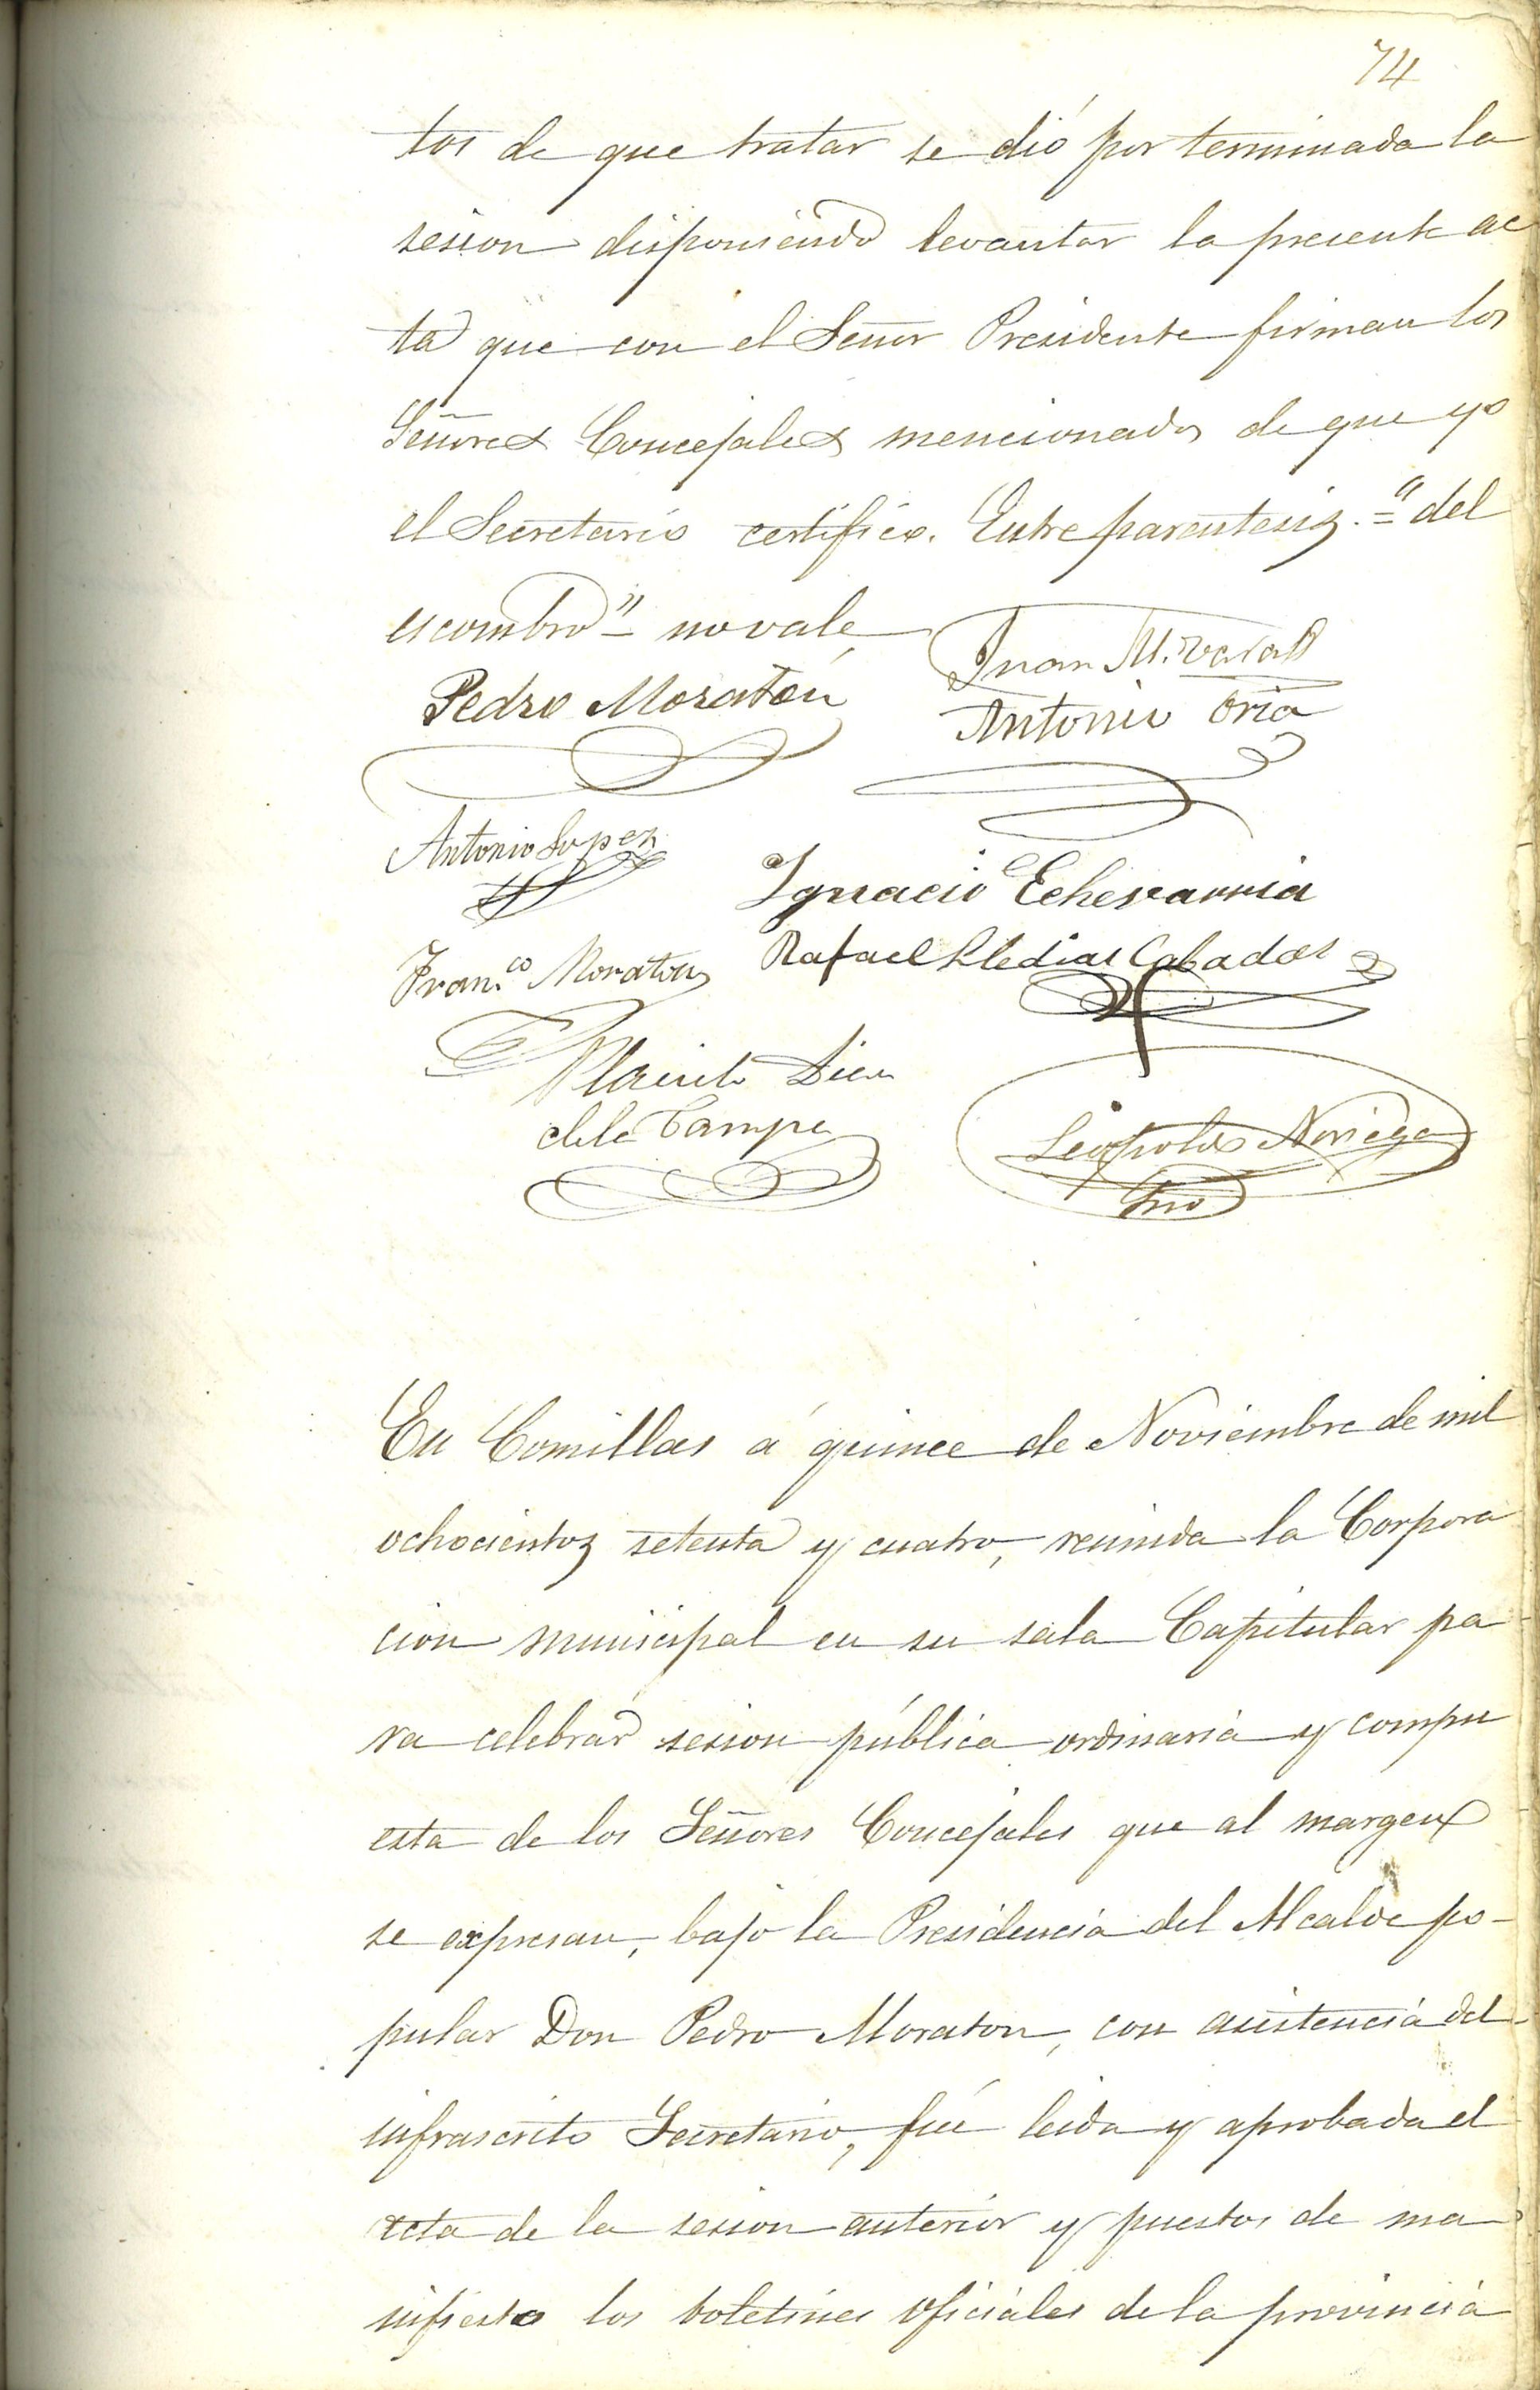 74
tos de que tratar se dió por terminada la
sesion disponiendo levantar la presente ac
ta que con el Señor Presidente firman los
Señores Concejales mencionados de que yo
el Secretario certifico. Entre parentesis.="del
escombro"- no vale
Juan M.
Pedro Moratón
Antonio Oria
Antonio Lopez
Ignacio Echevarria
Fran.co Moraton
Rafael
Placido Diez
de la Campa
Leopoldo Noriega
Srio
En Comillas á quince de Noviembre de mil
ochocientos setenta y cuatro, reunida la Corpora
cion municipal en su sala Capitular pa
ra celebrar sesion pública ordinaria y compu
esta de los Señores Concejales que al margen
se expresan, bajo la Presidencia del Alcalde po-
pular Don Pedro Moraton, con asistencia del
infrascrito Secretario, fué leida y aprobada el
acta de la sesion anterior y puestos de ma
nifiesto los boletines oficiales de la provincia